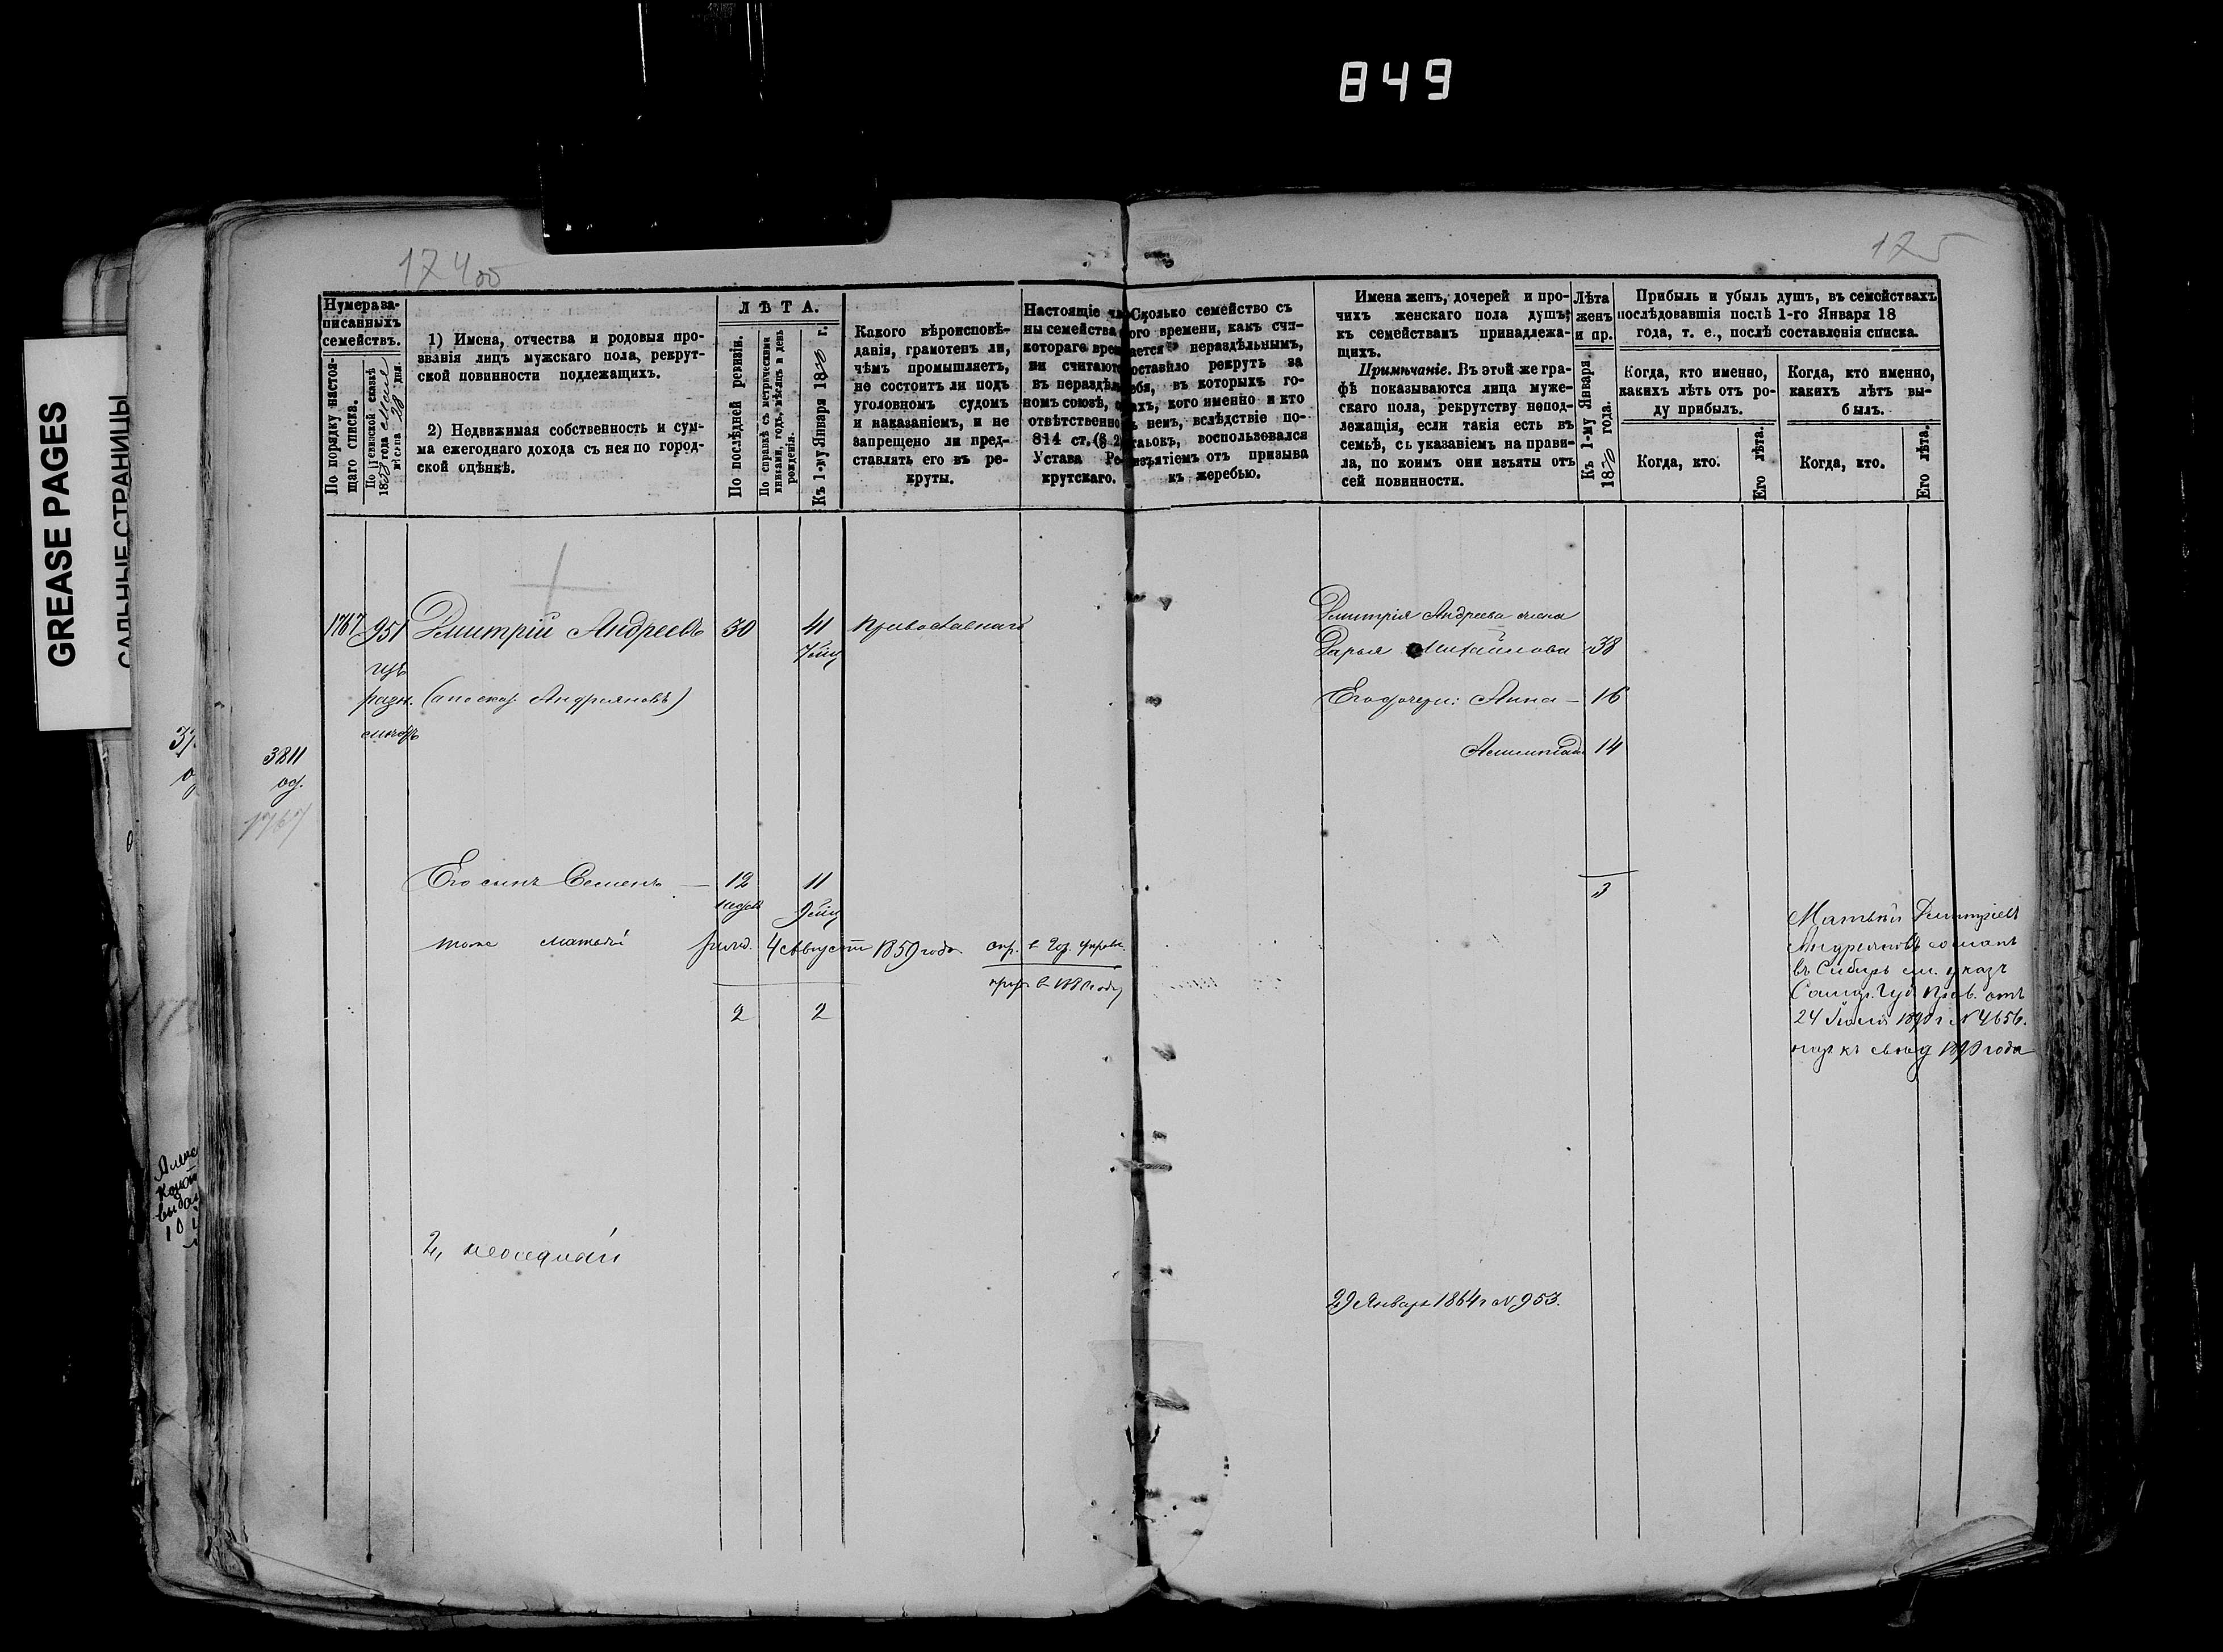 849
GREASE PAGES
САЛЬНЫЕ СТРАНИЦЫ
174 об
175
Нумера записанныхъ семействъ.
По порядку настоящаго списка.
По ревизской сказкѣ 1858 года мѣсяца 28 дня.
1) Имена, отчества и родовыя прозванія лицъ мужскаго пола, рекрутской повинности подлежащихъ.
2) Недвижимая собственность и сумма ежегоднаго дохода съ нея по городской оцѣнкѣ.
ЛѢТА.
По послѣдней ревизіи.
По справкѣ съ метрическими книгами, годъ, мѣсяцъ и день рожденія.
Къ 1-му Января 1870 г.
Какого вѣроисповѣданія, грамотенъ ли, чѣмъ промышляетъ, не состоитъ ли подъ уголовномъ судомъ и наказаніемъ, и не запрещено ли представлять его въ рекруты.
Настоящіе чле
ны семейства
котораго врем
ни считают
въ нераздѣл
номъ союзѣ,
отвѣтственно
814 ст. (§ 2)
Устава Ре
крутскаго.
Сколько семейство съ
ого времени, какъ счи-
ается нераздѣльнымъ,
оставило рекрутъ за
ебя, въ которыхъ го-
ахъ, кого именно и кто
ъ немъ, вслѣдствіе по-
воспользовался
изъятіемъ отъ призыва
къ жеребью.
Имена женъ, дочерей и прочихъ женскаго пола душъ, къ семействамъ принадлежащихъ.
Примѣчаніе. Въ этой же графѣ показываются лица мужескаго пола, рекрутству неподлежащія, если такія есть въ семьѣ, съ указаніемъ на правила, по коимъ они изъяты отъ сей повинности.
Лѣта женъ и пр.
Къ 1-му Января 1870 года.
Прибыль и убыль душъ, въ семействахъ послѣдовавшія послѣ 1-го Января 18 года, т. е., послѣ составленія списка.
Когда, кто именно, какихъ лѣтъ отъ роду прибылъ.
Когда, кто.
Его лѣта.
Когда, кто именно, какихъ лѣтъ выбылъ.
Когда, кто.
Его лѣта.
1767 951 Дмитрій Андреевъ 30 41 Православнаго
(а по скаӡ. Андреяновъ)
3811
од.
1767
Его сынъ Семенъ — 12 11
тоже Матвѣй 4 Августа 1859 года
2 2
2, неимѣетъ
Дмитрія Андреева жена
Дарья Михайлова 38
Его дочери: Анна — 16
14
3
29 Января 1864 г. N 953.
Матвѣй Дмитріевъ
Андреяновъ сосланъ
въ Сибирь см. указъ
Самар. Губ. Прав. отъ
24 Іюля 1890 г. N 4656.
1890 года